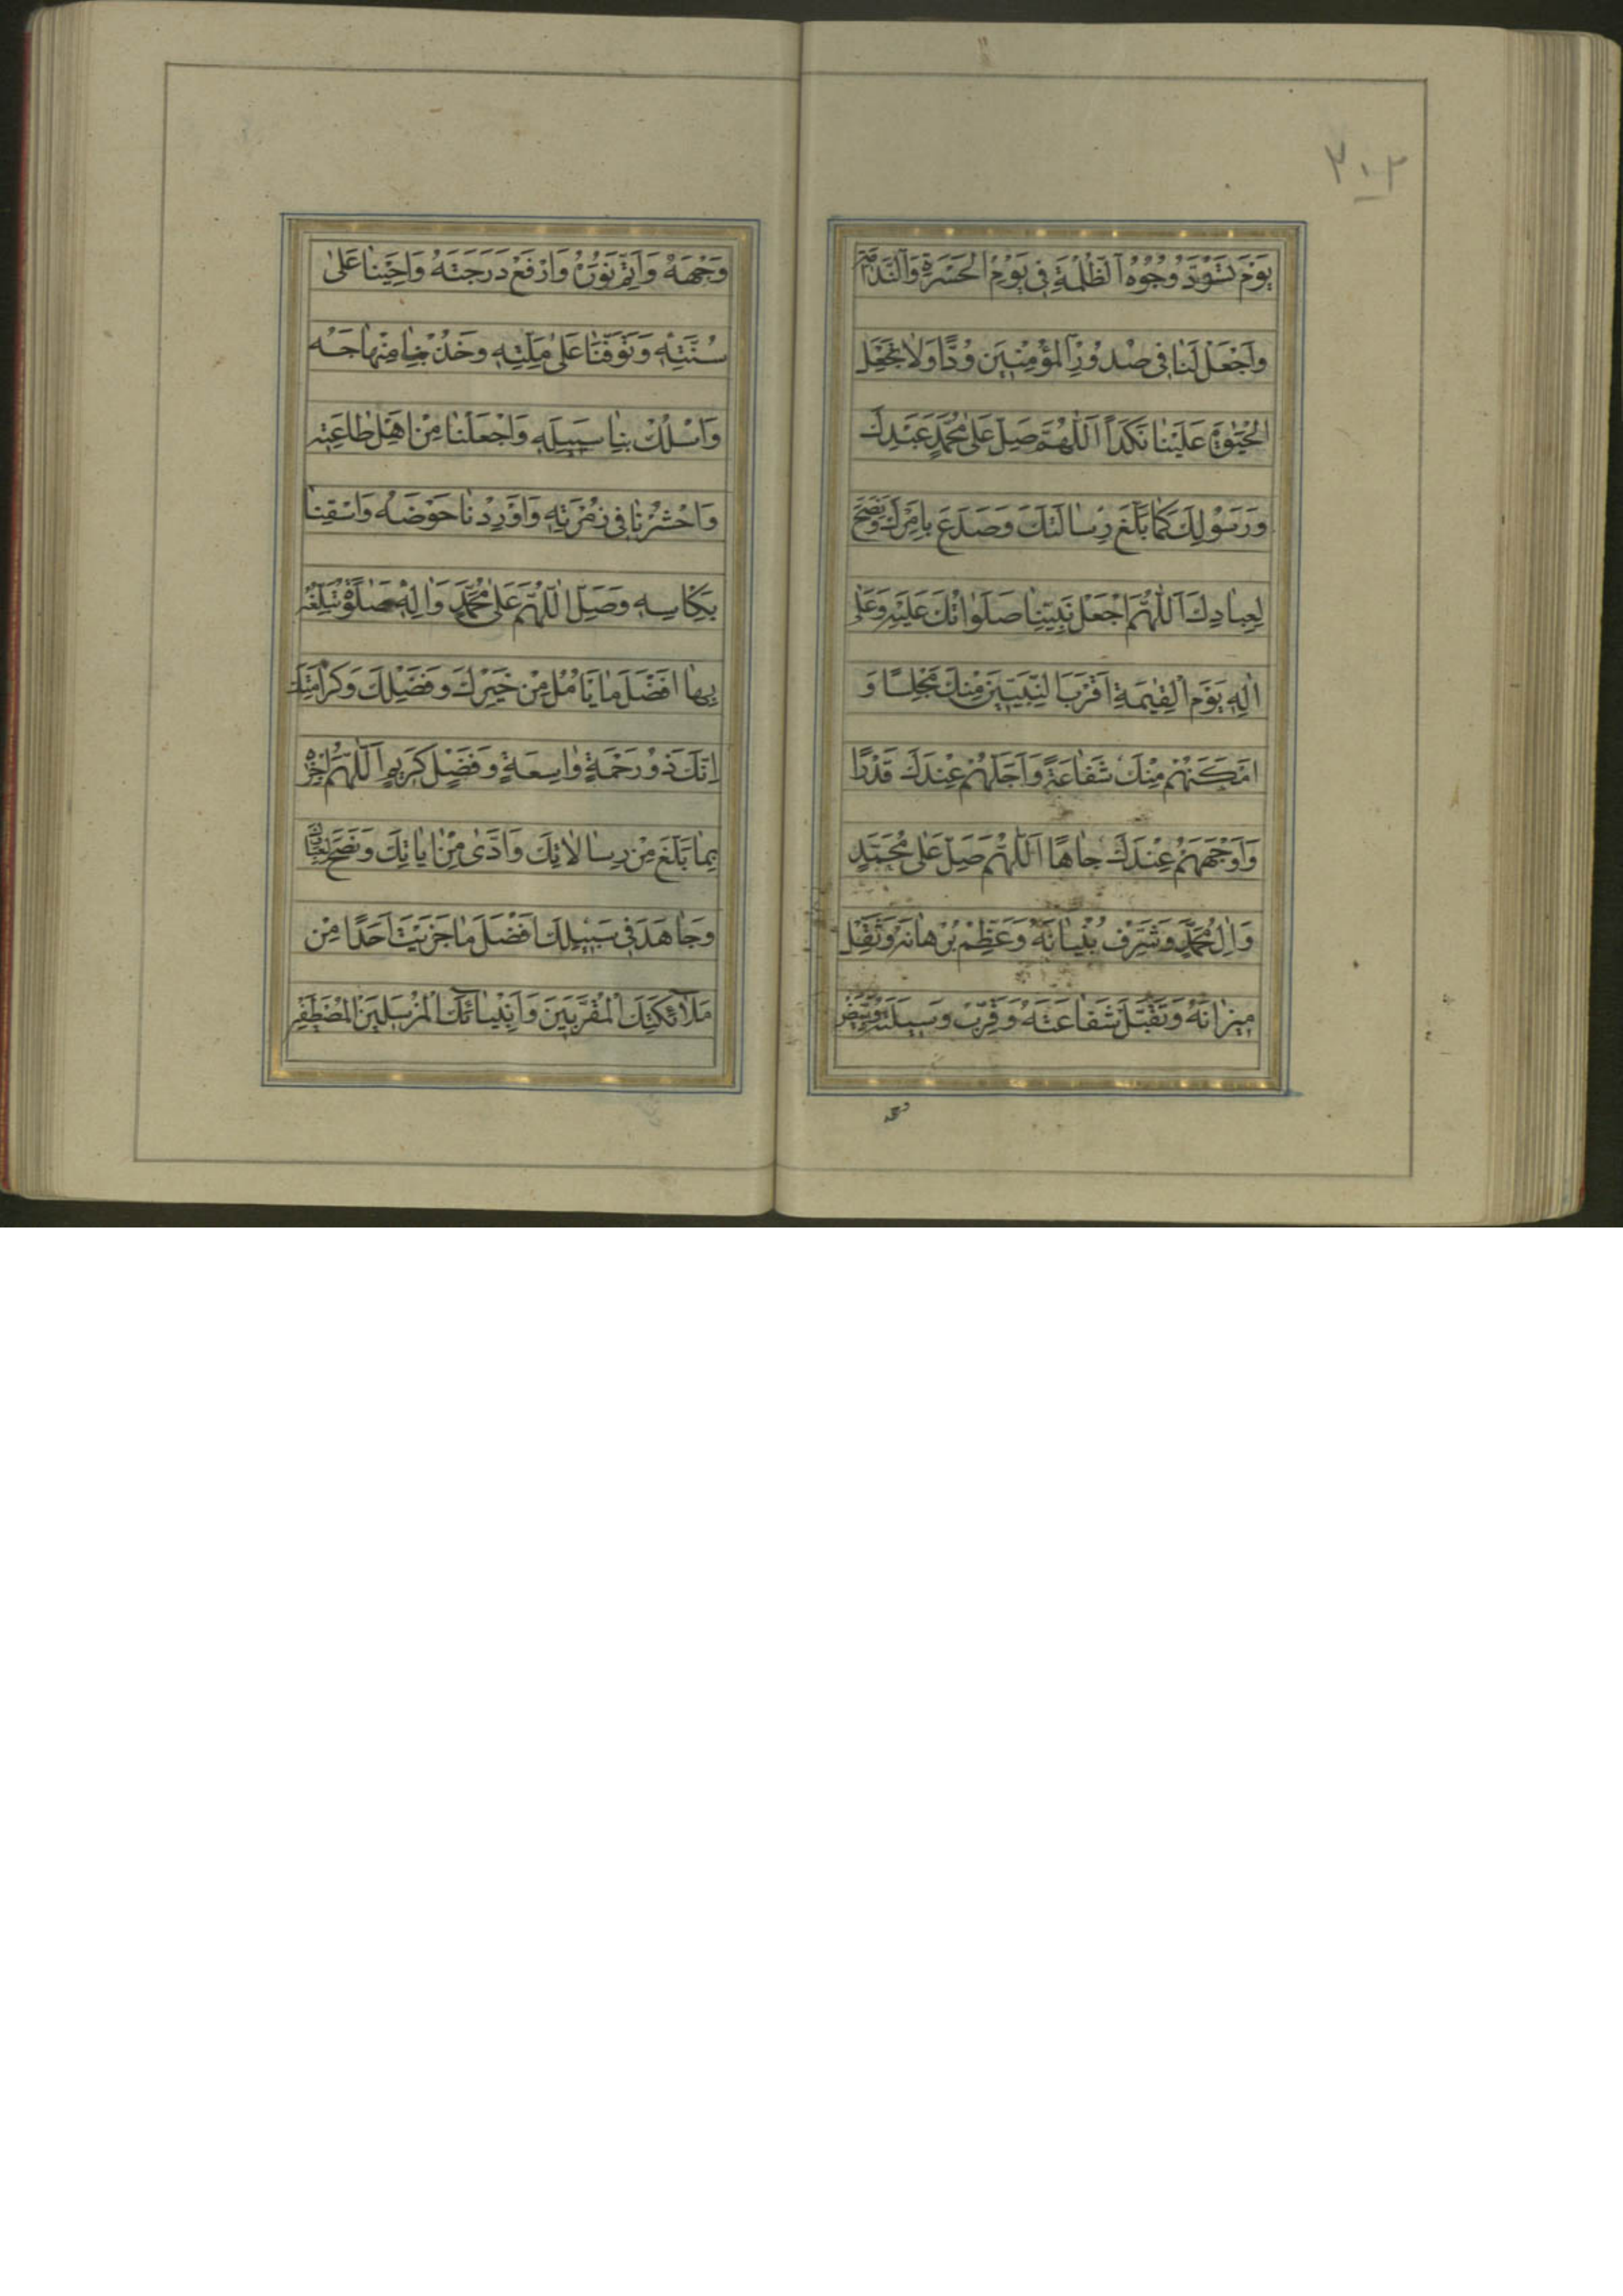 ٣٠٢
يَوْمَ تَسْوَدُّ وُجُوهُ ٱلظَّلَمَةِ فِى يَوْمِ الْحَسْرَةِ وَالنَّدَامَةِ
وَاجْعَلْ لَنَا فِى صُدُورِ الْمُؤْمِنِينَ وُدًّا وَلَا تَجْعَلِ
الْحَيٰوةَ عَلَيْنَا نَكَدًا اَللّٰهُمَّ صَلِّ عَلٰى مُحَمَّدٍ عَبْدِكَ
وَرَسُولِكَ كَمَا بَلَّغَ رِسَالَتَكَ وَصَدَعَ بِاَمْرِكَ وَنَصَحَ
لِعِبَادِكَ اَللّٰهُمَّ اجْعَلْ نَبِيَّنَا صَلَوَاتُكَ عَلَيْهِ وَعَلٰى
اٰلِهِ يَوْمَ الْقِيٰمَةِ اَقْرَبَ النَّبِيِّينَ مِنْكَ مَجْلِسًا وَ
اَمْكَنَهُمْ مِنْكَ شَفَاعَةً وَاَجَلَّهُمْ عِنْدَكَ قَدْرًا
وَاَوْجَهَهُمْ عِنْدَكَ جَاهًا اَللّٰهُمَّ صَلِّ عَلٰى مُحَمَّدٍ
وَاٰلِ مُحَمَّدٍ وَشَرِّفْ بُنْيَانَهُ وَعَظِّمْ بُرْهَانَهُ وَثَقِّلْ
مِيزَانَهُ وَتَقَبَّلْ شَفَاعَتَهُ وَقَرِّبْ وَسِيلَتَهُ وَبَيِّضْ
وجهه
وَجْهَهُ وَاَتِمَّ نُورَهُ وَارْفَعْ دَرَجَتَهُ وَاَحْيِنَا عَلٰى
سُنَّتِهِ وَتَوَفَّنَا عَلٰى مِلَّتِهِ وَخُذْ بِنَا مِنْهَاجَهُ
وَاسْلُكْ بِنَا سَبِيلَهُ وَاجْعَلْنَا مِنْ اَهْلِ طَاعَتِهِ
وَاحْشُرْنَا فِى زُمْرَتِهِ وَاَوْرِدْنَا حَوْضَهُ وَاسْقِنَا
بِكَاْسِهِ وَصَلِّ اللّٰهُمَّ عَلٰى مُحَمَّدٍ وَاٰلِهِ صَلٰوةً تُبَلِّغُهُ
بِهَا اَفْضَلَ مَا يَاْمُلُ مِنْ خَيْرِكَ وَفَضْلِكَ وَكَرَامَتِكَ
اِنَّكَ ذُو رَحْمَةٍ وَاسِعَةٍ وَفَضْلٍ كَرِيمٍ اَللّٰهُمَّ اجْزِهِ
بِمَا بَلَّغَ مِنْ رِسَالَاتِكَ وَاَدّٰى مِنْ اٰيَاتِكَ وَنَصَحَ لِعِبَادِكَ
وَجَاهَدَ فِى سَبِيلِكَ اَفْضَلَ مَا جَزَيْتَ اَحَدًا مِنْ
مَلَائِكَتِكَ الْمُقَرَّبِينَ وَاَنْبِيَائِكَ الْمُرْسَلِينَ الْمُصْطَفَيْنَ